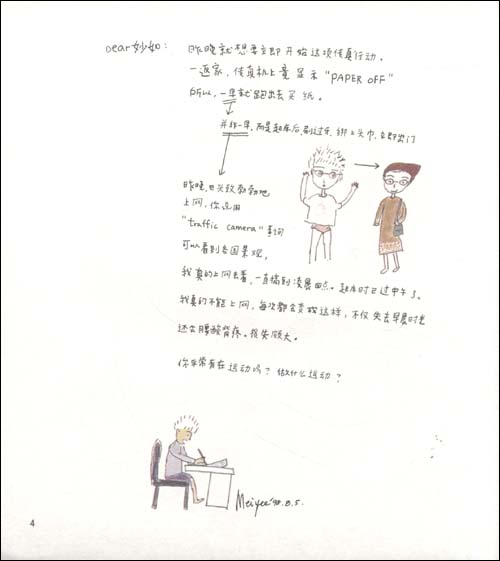 Dear妙如：
昨晚就想要立即开始这项传真行动。
一返家，传真机上竟显示“PAPER OFF”
所以，一早就跑出去买纸。
并非一早，而是起床后，刷过牙，绑上头巾，立即出门
昨晚，也兴致勃勃地
上网，你说用
“traffic camera”查询
可以看到各国景观，
我真的上网去看，一直搞到凌晨四点。起床时已过中午了。
我真的不能上网，每次都会变成这样，不仅失去早晨时光
还会腰酸背疼。损失颇大。
你平常有在运动吗？做什么运动？
Meiyee '98.8.5.
4